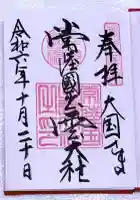 奉拝
大国さま
常陸國出雲大社
令和六年十月二十日